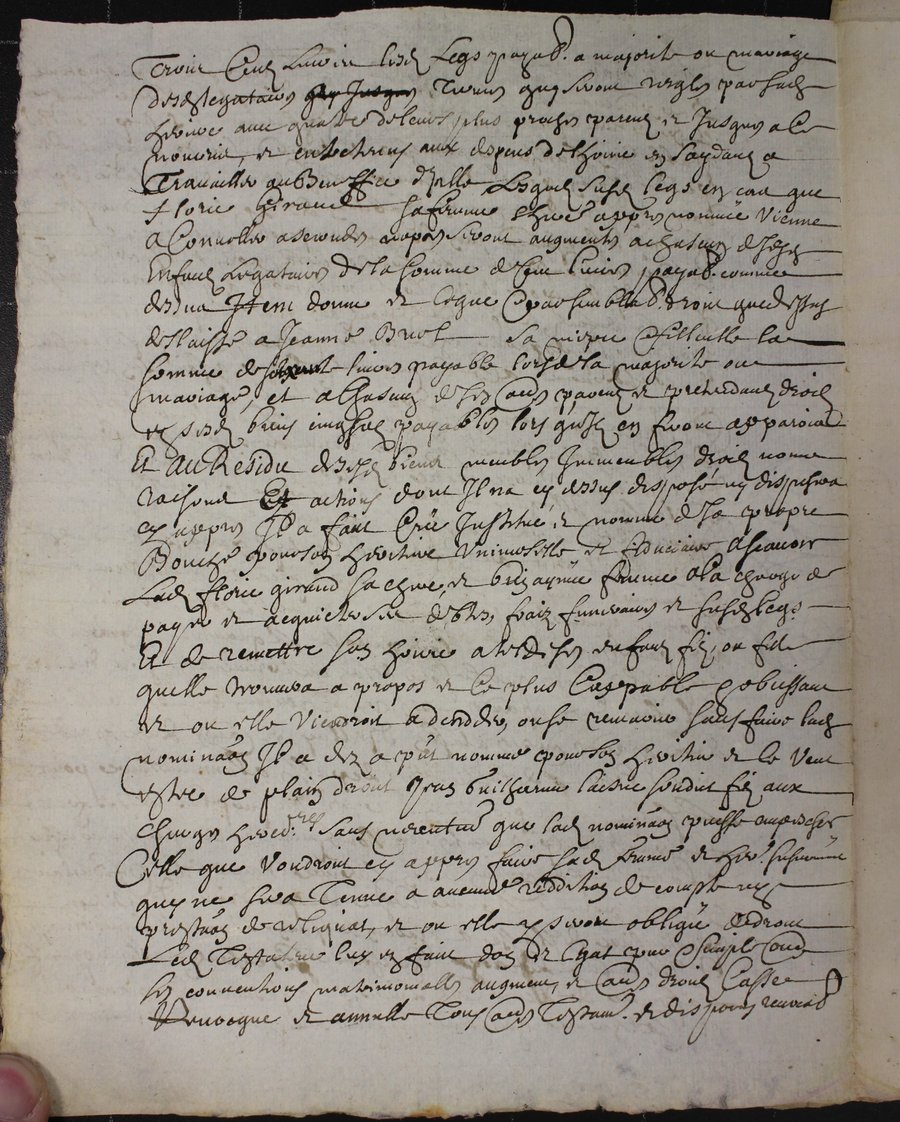 Trois Cens Livres lesd. Legs payab. a majorite ou mariage
desd. legataires Termes quy seront regles par lad.
heritiere avec quattre de leurs plus proches parens et Jusques a Ce
nourris, et entretenus aux depens de lhoirie en saydant a
Travailler au Beneffice dycelle Lesquels susd. legs en cas que
florie Giraud sa femme & here. appres nommée Vienne
a Convoller a secondes nopces seront augmentés a chascun desd.
Enfans Legataires de la somme de Cent livres payab. comme
dessus Item donne et legue par semblab. droit que dessus
delaisse a Jeanne Bruel sa niepce & filleulle la
somme de livres payable lors de sa majorite ou
mariage, et a Chascun de ses aues parens et pretendans droit
en sesd. biens cinq sols payables lors quilz en feront apparoir
Et Au Residu de sesd. biens meubles Immeubles droits noms
raisons Et actions dont Il na cy dessus disposé ny disposera
cy appres Il a fait Creé Institué et nommé de sa propre
Bouche pour son heritiere Universelle et fiduciaire Ascavoir
Lad. florie girand sa chere, et bien aymée femme a la charge de
payer et acquitter ses debtes, fraiz funeraires et susd. legs
Et de remettre son hoirie a lun de ses enfans filz, ou fille
quelle trouvera a propos et le plus Cappable & obeissant
et ou elle Viendroit a deceder, ou se remarier sans faire lad.
nomination Il a dez a put nommé pour son heritier et le veut
estre de plain droit Jean Guilhaume laisné sondit filz aux
charges hered.res sans neantms. que lad. nomination puisse empescher
Celle que Voudroit cy appres faire sad. femme et her. susnommée
quy ne sera Tenue a aucune reddition de compte ny
prestation de reliquat, et ou elle y seroit obligée de droit
Led. Testateur luy en fait don et legat pour
ses conventions matrimonialles augment, et autres droits Casse
Revocque et annulle Tous autres Testam. et dispositions